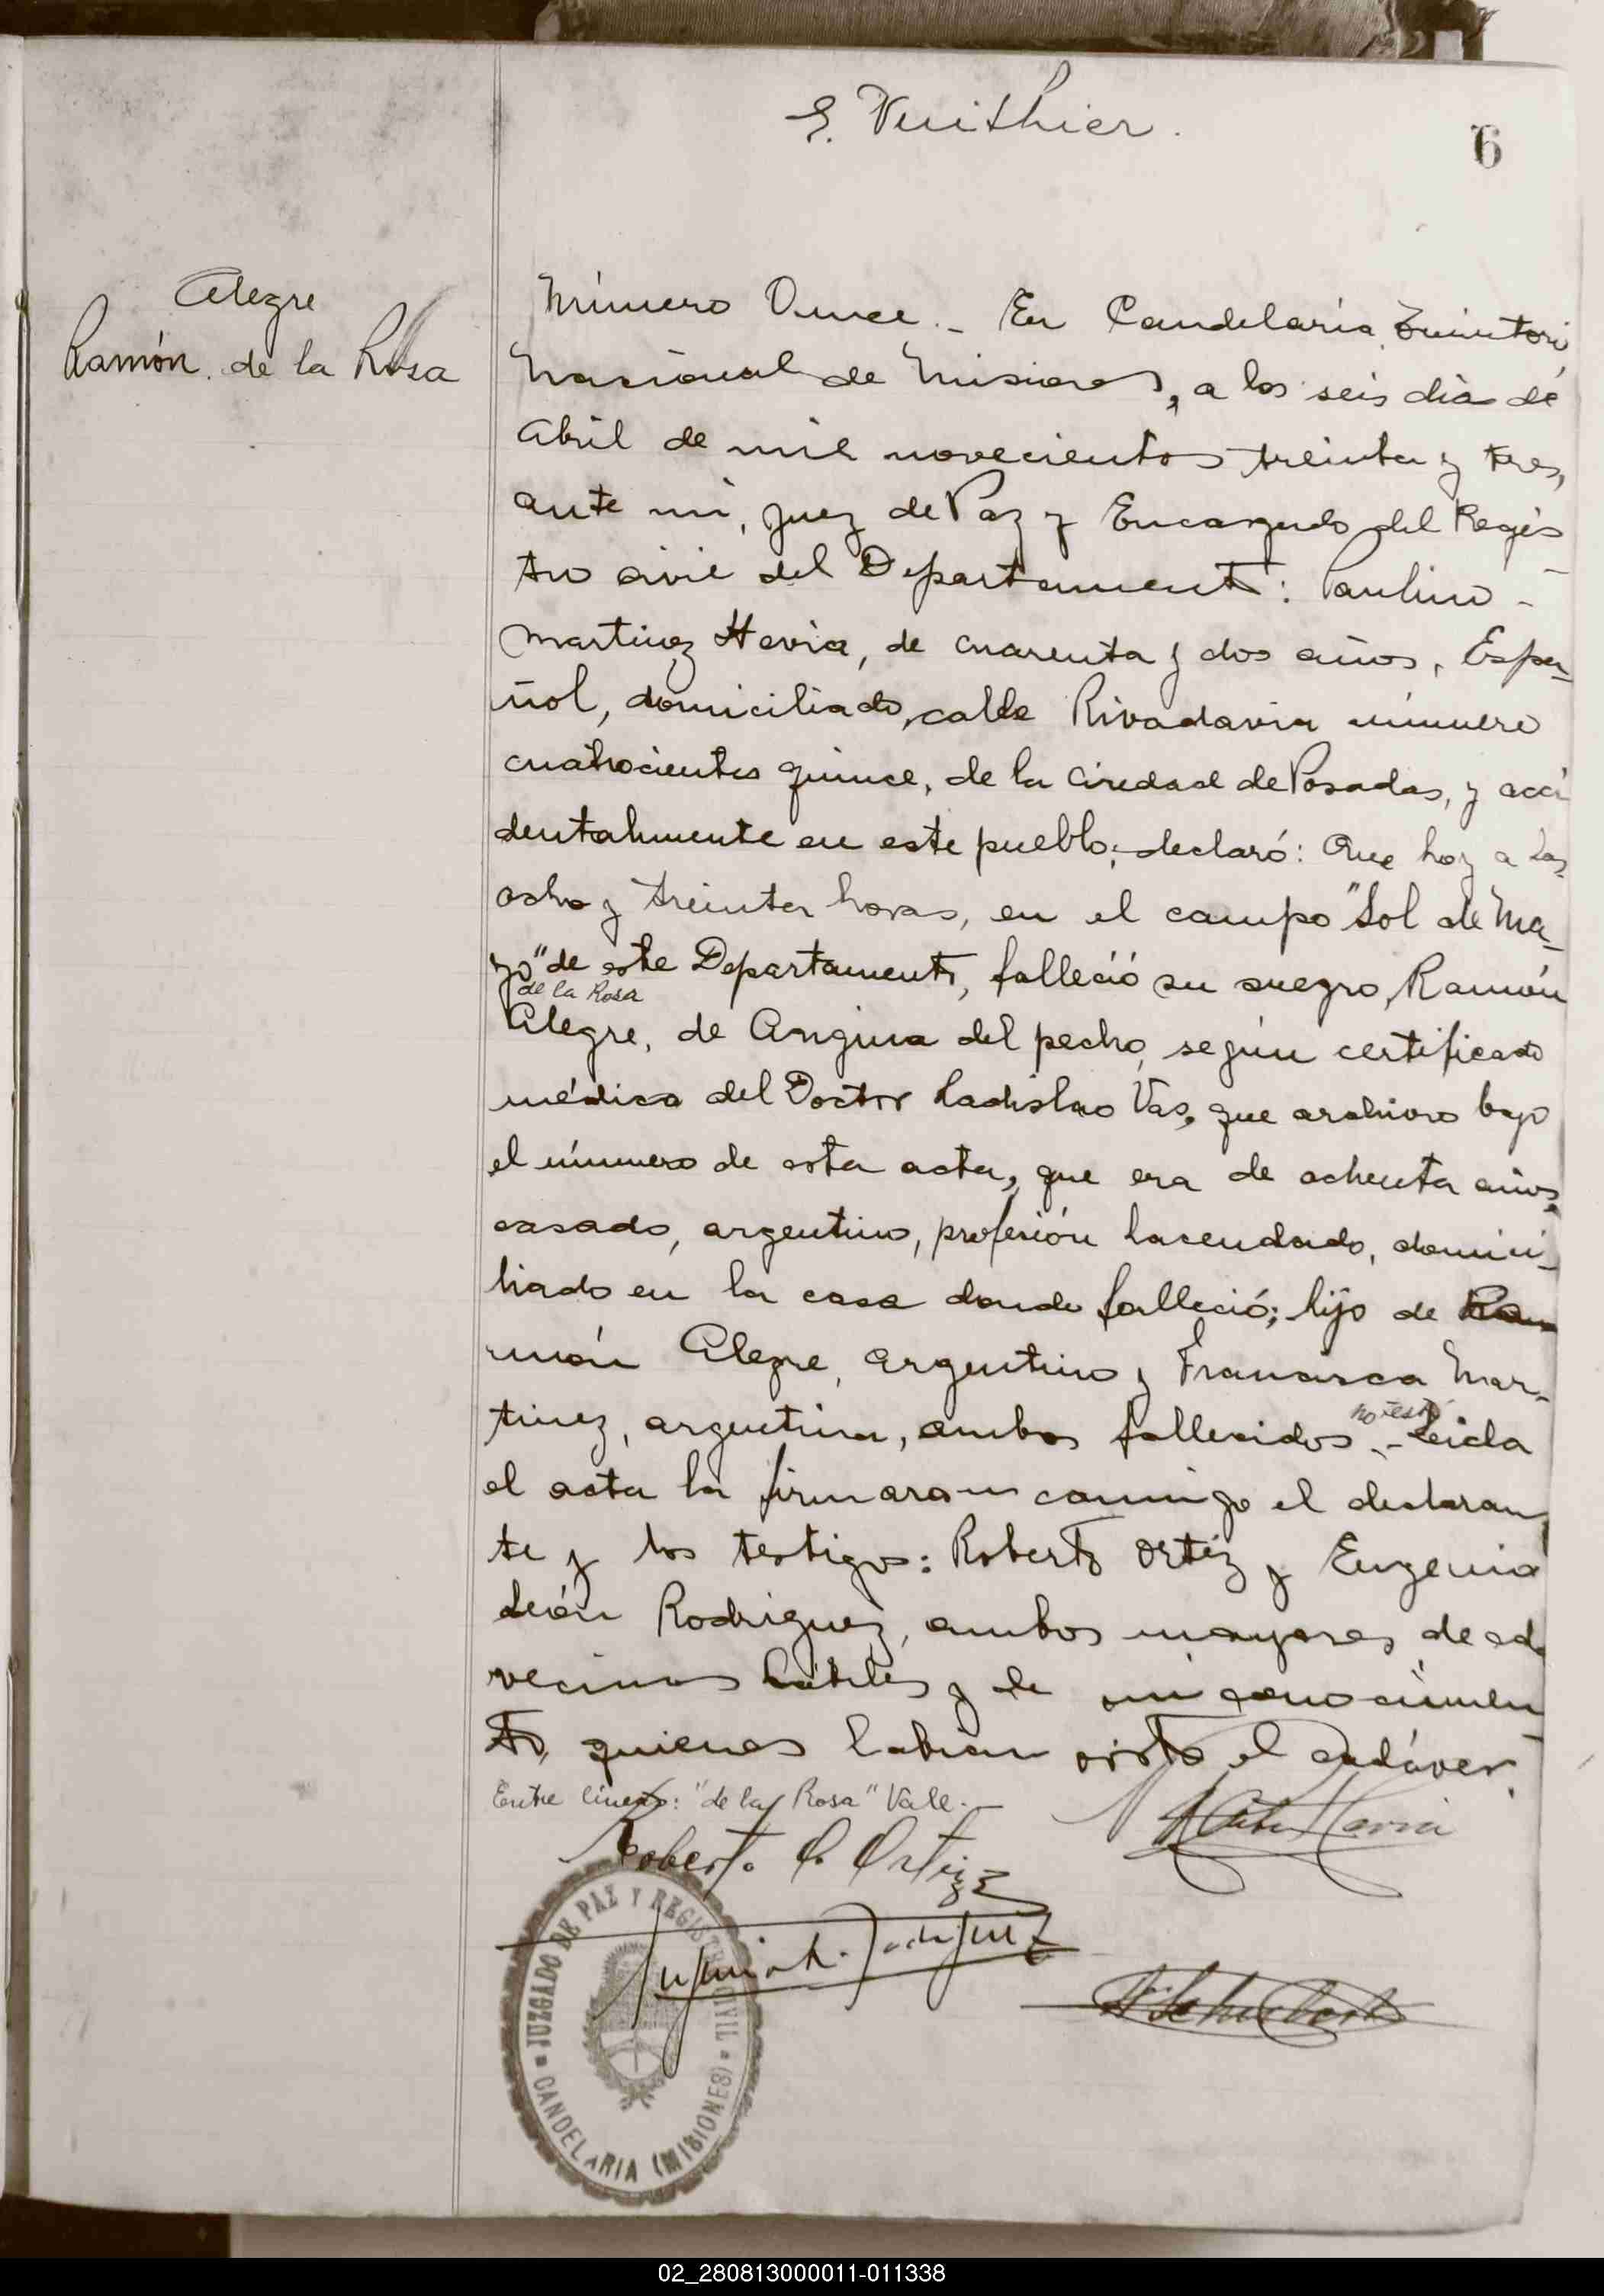 E. Vuithier.
6
Alegre
Ramón de la Rosa
Número Once.- En Candelaria, Territori
Nacional de Misiones, a los seis dia de
Abril de mil novecientos treinta y tres,
ante mi, Juez de Paz y Encargado del Regis
tro civil del Departamento: Paulino -
Martinez Hevia, de cuarenta y dos años, Espa-
ñol, domiciliado, calle Rivadavia número
cuatrocientos quince, de la Ciudad de Posadas, y acci
dentalmente en este pueblo, declaró: Que hoy a las
ocho y treinta horas, en el campo "Sol de Ma-
yo" de este Departamento, falleció su suegro, Ramón
de la Rosa
Alegre, de Angina del pecho, según certificado
médico del Doctor Ladislao Vas, que archivo bajo
el número de esta acta, que era de ochenta años,
casado, argentino, profesión hacendado, domici-
liado en la casa donde falleció; hijo de Ra
món Alegre, argentino y Francisca Mar-
tinez, argentina, ambos fallecidos.- Leida
el acta la firmaron conmigo el declaran
te y los testigos: Roberto Ortiz y Eugenio
León Rodriguez, ambos mayores de eda
vecinos hábiles y de mi conocimien
to, quienes habian visto el cadáver.
Entre lineas: "de la Rosa" Vale.-
Roberto O. Ortiz
JUZGADO DE PAZ Y REGISTRO CIVIL
CANDELARIA (MISIONES)
02_280813000011-011338